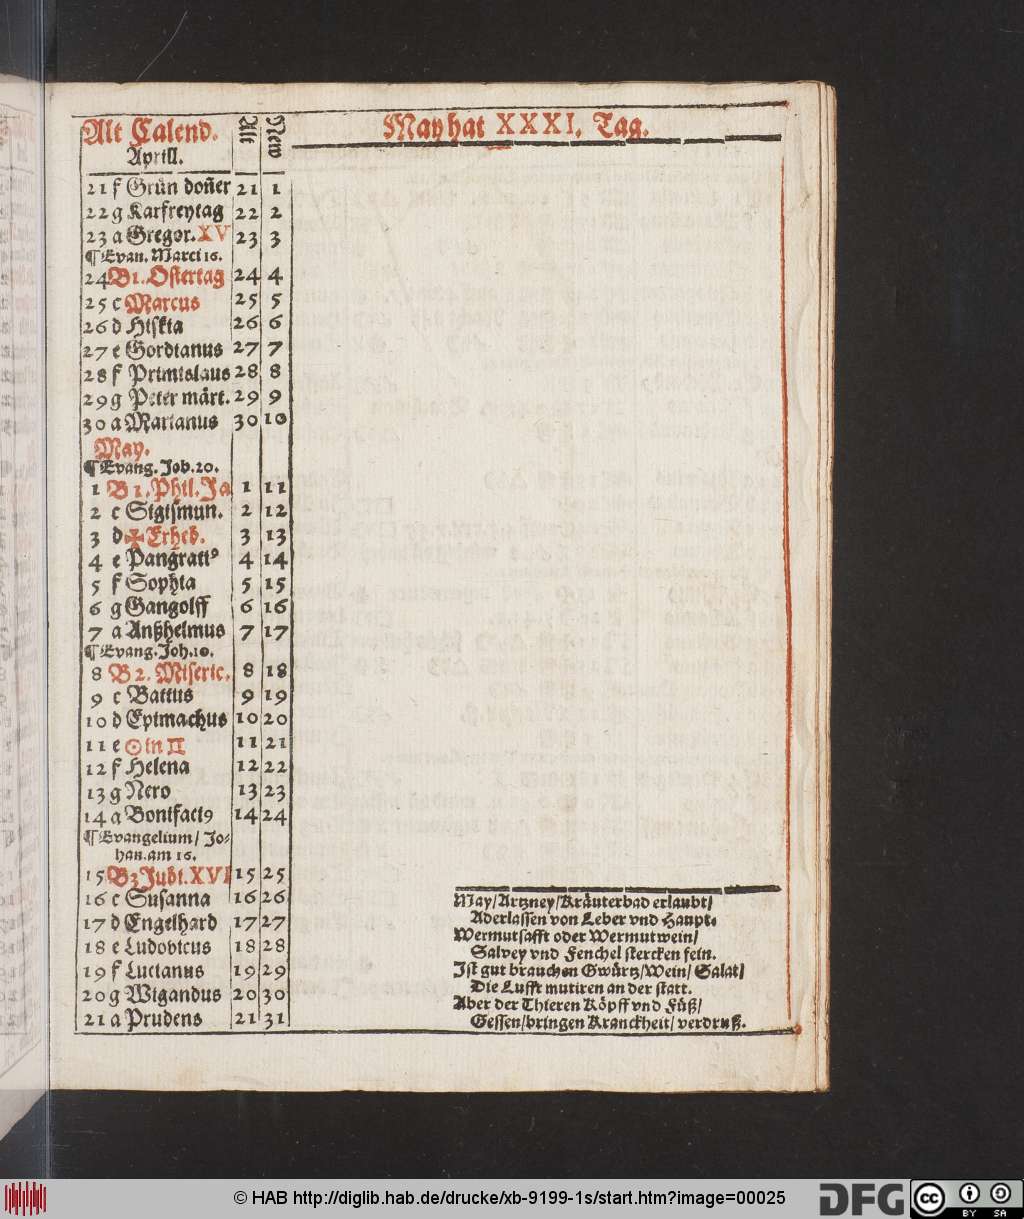 Alt Calend. Alt New May hat XXXI. Tag.
Aprill.
21 f Grün doñer 21 1
22 g Karfreytag 22 2
23 a Gregor. XV 23 3
¶ Evan. Marci 16.
24 B 1. Ostertag 24 4
25 c Marcus 25 5
26 d Hiskia 26 6
27 e Gordianus 27 7
28 f Primislaus 28 8
29 g Peter märt. 29 9
30 a Marianus 30 10
May.
¶ Evang. Joh. 20.
1 B 1. Phil. Ja 1 11
2 c Sigismun. 2 12
3 d ✠ Erheb. 3 13
4 e Pangratiꝰ 4 14
5 f Sophia 5 15
6 g Gangolff 6 16
7 a Anßhelmus 7 17
¶ Evang. Joh. 10.
8 B 2. Miseric. 8 18
9 c Battus 9 19
10 d Epimachus 10 20
11 e ☉ in ♊ 11 21
12 f Helena 12 22
13 g Nero 13 23
14 a Bonifaciꝰ 14 24
¶ Evangelium/ Jo-
han. am 16.
15 B 3 Jubi. XVI 15 25
16 c Susanna 16 26
17 d Engelhard 17 27
18 e Ludovicus 18 28
19 f Lucianus 19 29
20 g Wigandus 20 30
21 a Prudens 21 31
May/ Artzney/ Kräuterbad erlaubt/
Aderlassen von Leber vnd Haupt.
Wermutsafft oder Wermutwein/
Salvey vnd Fenchel stercken fein.
Ist gut brauchen Gwürtz/ Wein/ Salat/
Die Lufft mutiren an der statt.
Aber der Thieren Köpff vnd Füß/
Gessen/ bringen Kranckheit/ verdruß.
© HAB http://diglib.hab.de/drucke/xb-9199-1s/start.htm?image=00025
DFG cc BY SA